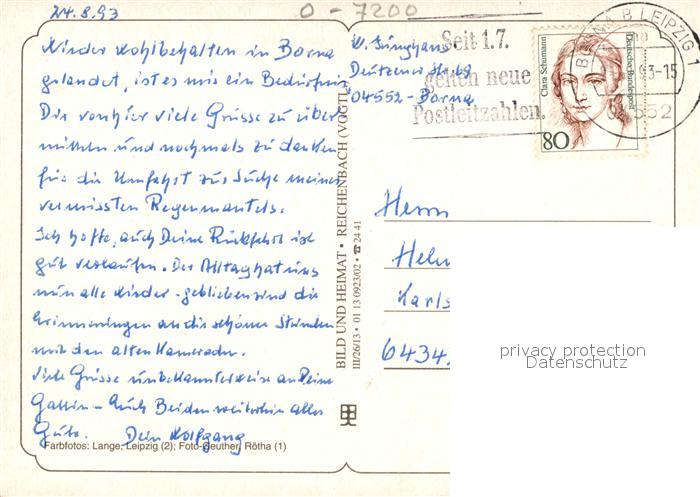 24.8.93
O-7200
Wieder wohlbehalten in Borna
gelandet, ist es mir ein Bedürfnis
Dir von hier viele Grüsse zu über
mitteln und nochmals zu danken
für die Umfahrt zur Suche meines
vermissten Regenmantels.
Ich hoffe, auch Deine Rückfahrt ist
gut verlaufen. Der Alltag hat uns
nun alle wieder - geblieben sind die
Erinnerungen an die schönen Stunden
mit den alten Kameraden.
Viele Grüsse unbekannterweise an Deine
Gattin - Euch Beiden weiterhin alles
Gute. Dein Wolfgang
Farbfotos: Lange, Leipzig (2); Foto-Reuther, Rötha (1)
W. Junghans
Deutzener Str. 69
04552-Borna
BILD UND HEIMAT • REICHENBACH (VOGTL)
III/26/13 • 01 13 0923/02 • ☎ 24 41
Seit 1.7.
gelten neue
Postleitzahlen.
Clara Schumann
Deutsche Bundespost
80
BORNA B LEIPZIG 1
93-15
04552
Herrn
Helm
Karls
6434
privacy protection
Datenschutz